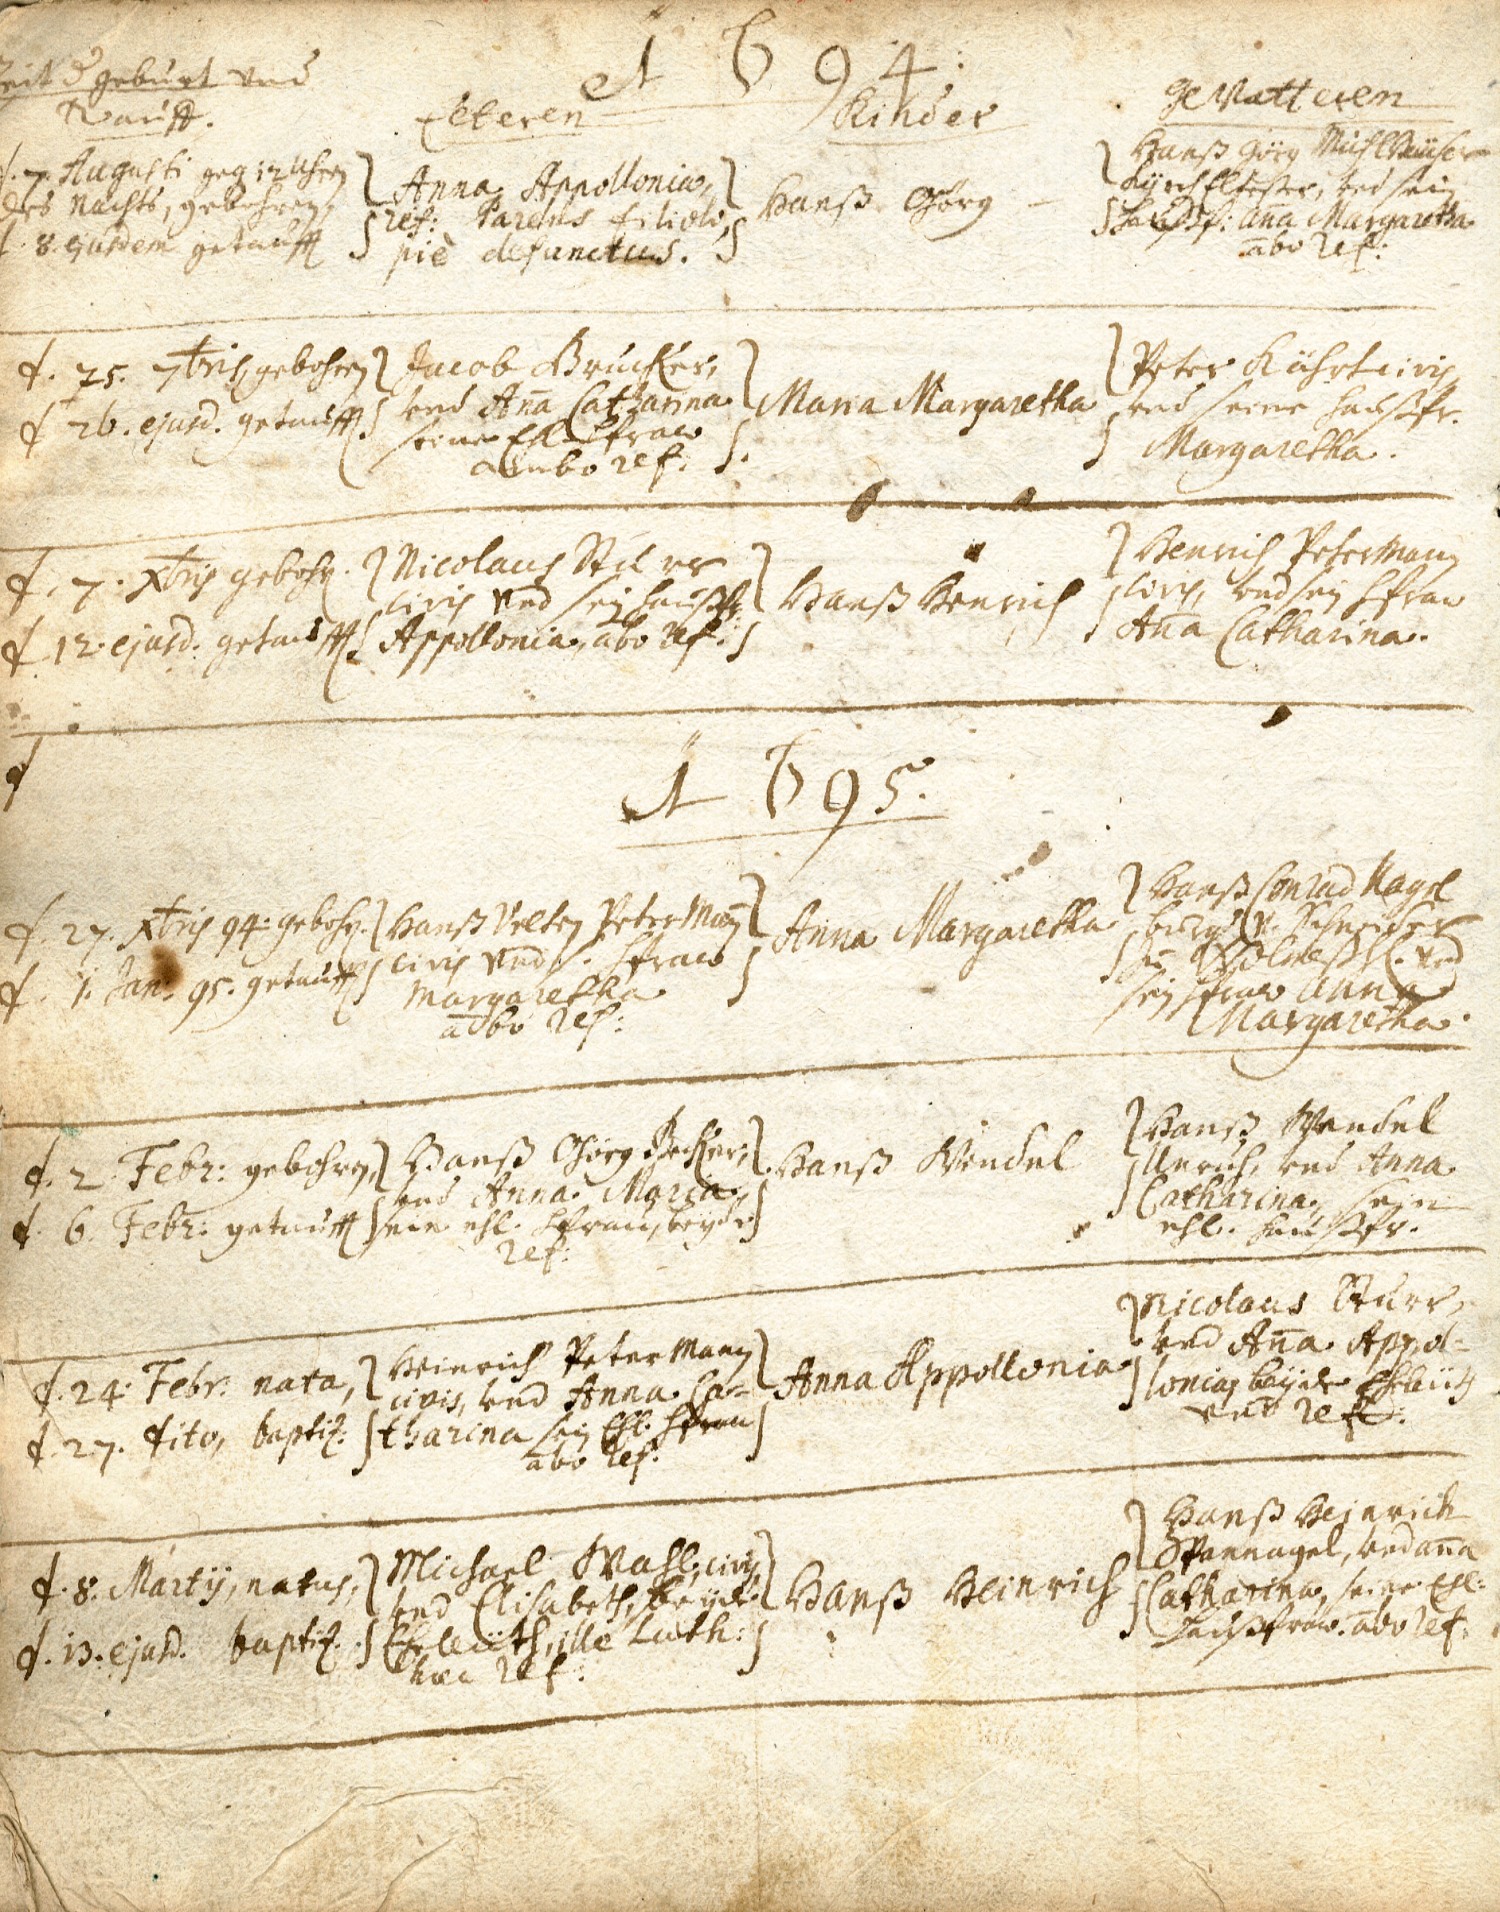 1694.
Zeit d geburt und
Tauff.
Eltern
Kinder
Gevatteren
d. 7. Augusti geg 12 Uhren
des Nachts, gebohren,
d. 8. ejusdem getaufft
Anna Appollonia,
ref: Parens filioli,
piè defunctus.
Hanß Görg
Hanß Görg
Kyrch Eltester, und sein
Haußf: aña Margaretha
abo ref:
d. 25. 7bris, gebohren
d 26. ejusd. getaufft.
Jacob Brucker,
und Aña Catharina
seine Ehl. Hfraw
ambo ref:
Maria Margaretha
Peter civis,
und seine Haußfr.
Margaretha.
d. 7. Xbris gebohr.
d. 12. ejusd. getaufft
Nicolaus Sturr
civis und sein haußfr
Appollonia, abo ref:
Hanß Henrich
Henrich Peterman
civis, und sein Hfraw
Aña Catharina.
1695.
d. 27. Xbris 94. gebohr.
d. 1. Jan. 95. getaufft
Hanß Velten Peterman
civis und s. Hfraw
Margaretha
abo ref:
Anna Margaretha
Hanß Conrad Nagel
burger v. Schneider
zu und
sein fraw Anna
Margaretha.
d. 2. Febr: gebohren,
d. 6. Febr: getaufft
Hanß Görg Becker,
und Anna Maria
sein ehl. Hfrau, beyde
ref:
Hanß Wendel
Hanß Wendel
Unrich, und Anna
Catharina, sein
ehl. Haußfr.
d. 24. Febr: nata,
d. 27. dito, baptiz.
Heinrich Peterman
civis, und Anna Ca-
tharina sein Ehl. Hfrau
abo ref:
Anna Appollonia
Nicolaus Sturr,
und Aña Appol-
lonia, beyde Ehleut
und ref:
d. 8. Martij, natus,
d. 13. ejusd. baptiz.
Michael Wahl, civis,
und Elisabeth, beyde
Ehleuth, ille Luth:
haec ref:
Hanß Heinrich
Hanß Heinrich
Spannagel, und aña
Catharina, seine Ehl:
Haußfraw. abo ref.